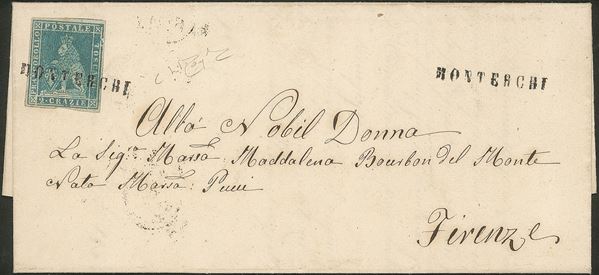 FRANCOBOLLO POSTALE TOSCANO
2 CRAZIE
MONTERCHI
MONTERCHI
Alla Nobil Donna
La Sig.ra Marsa. Maddalena Bourbon del Monte
Nata Marsa. Pucci
Firenze